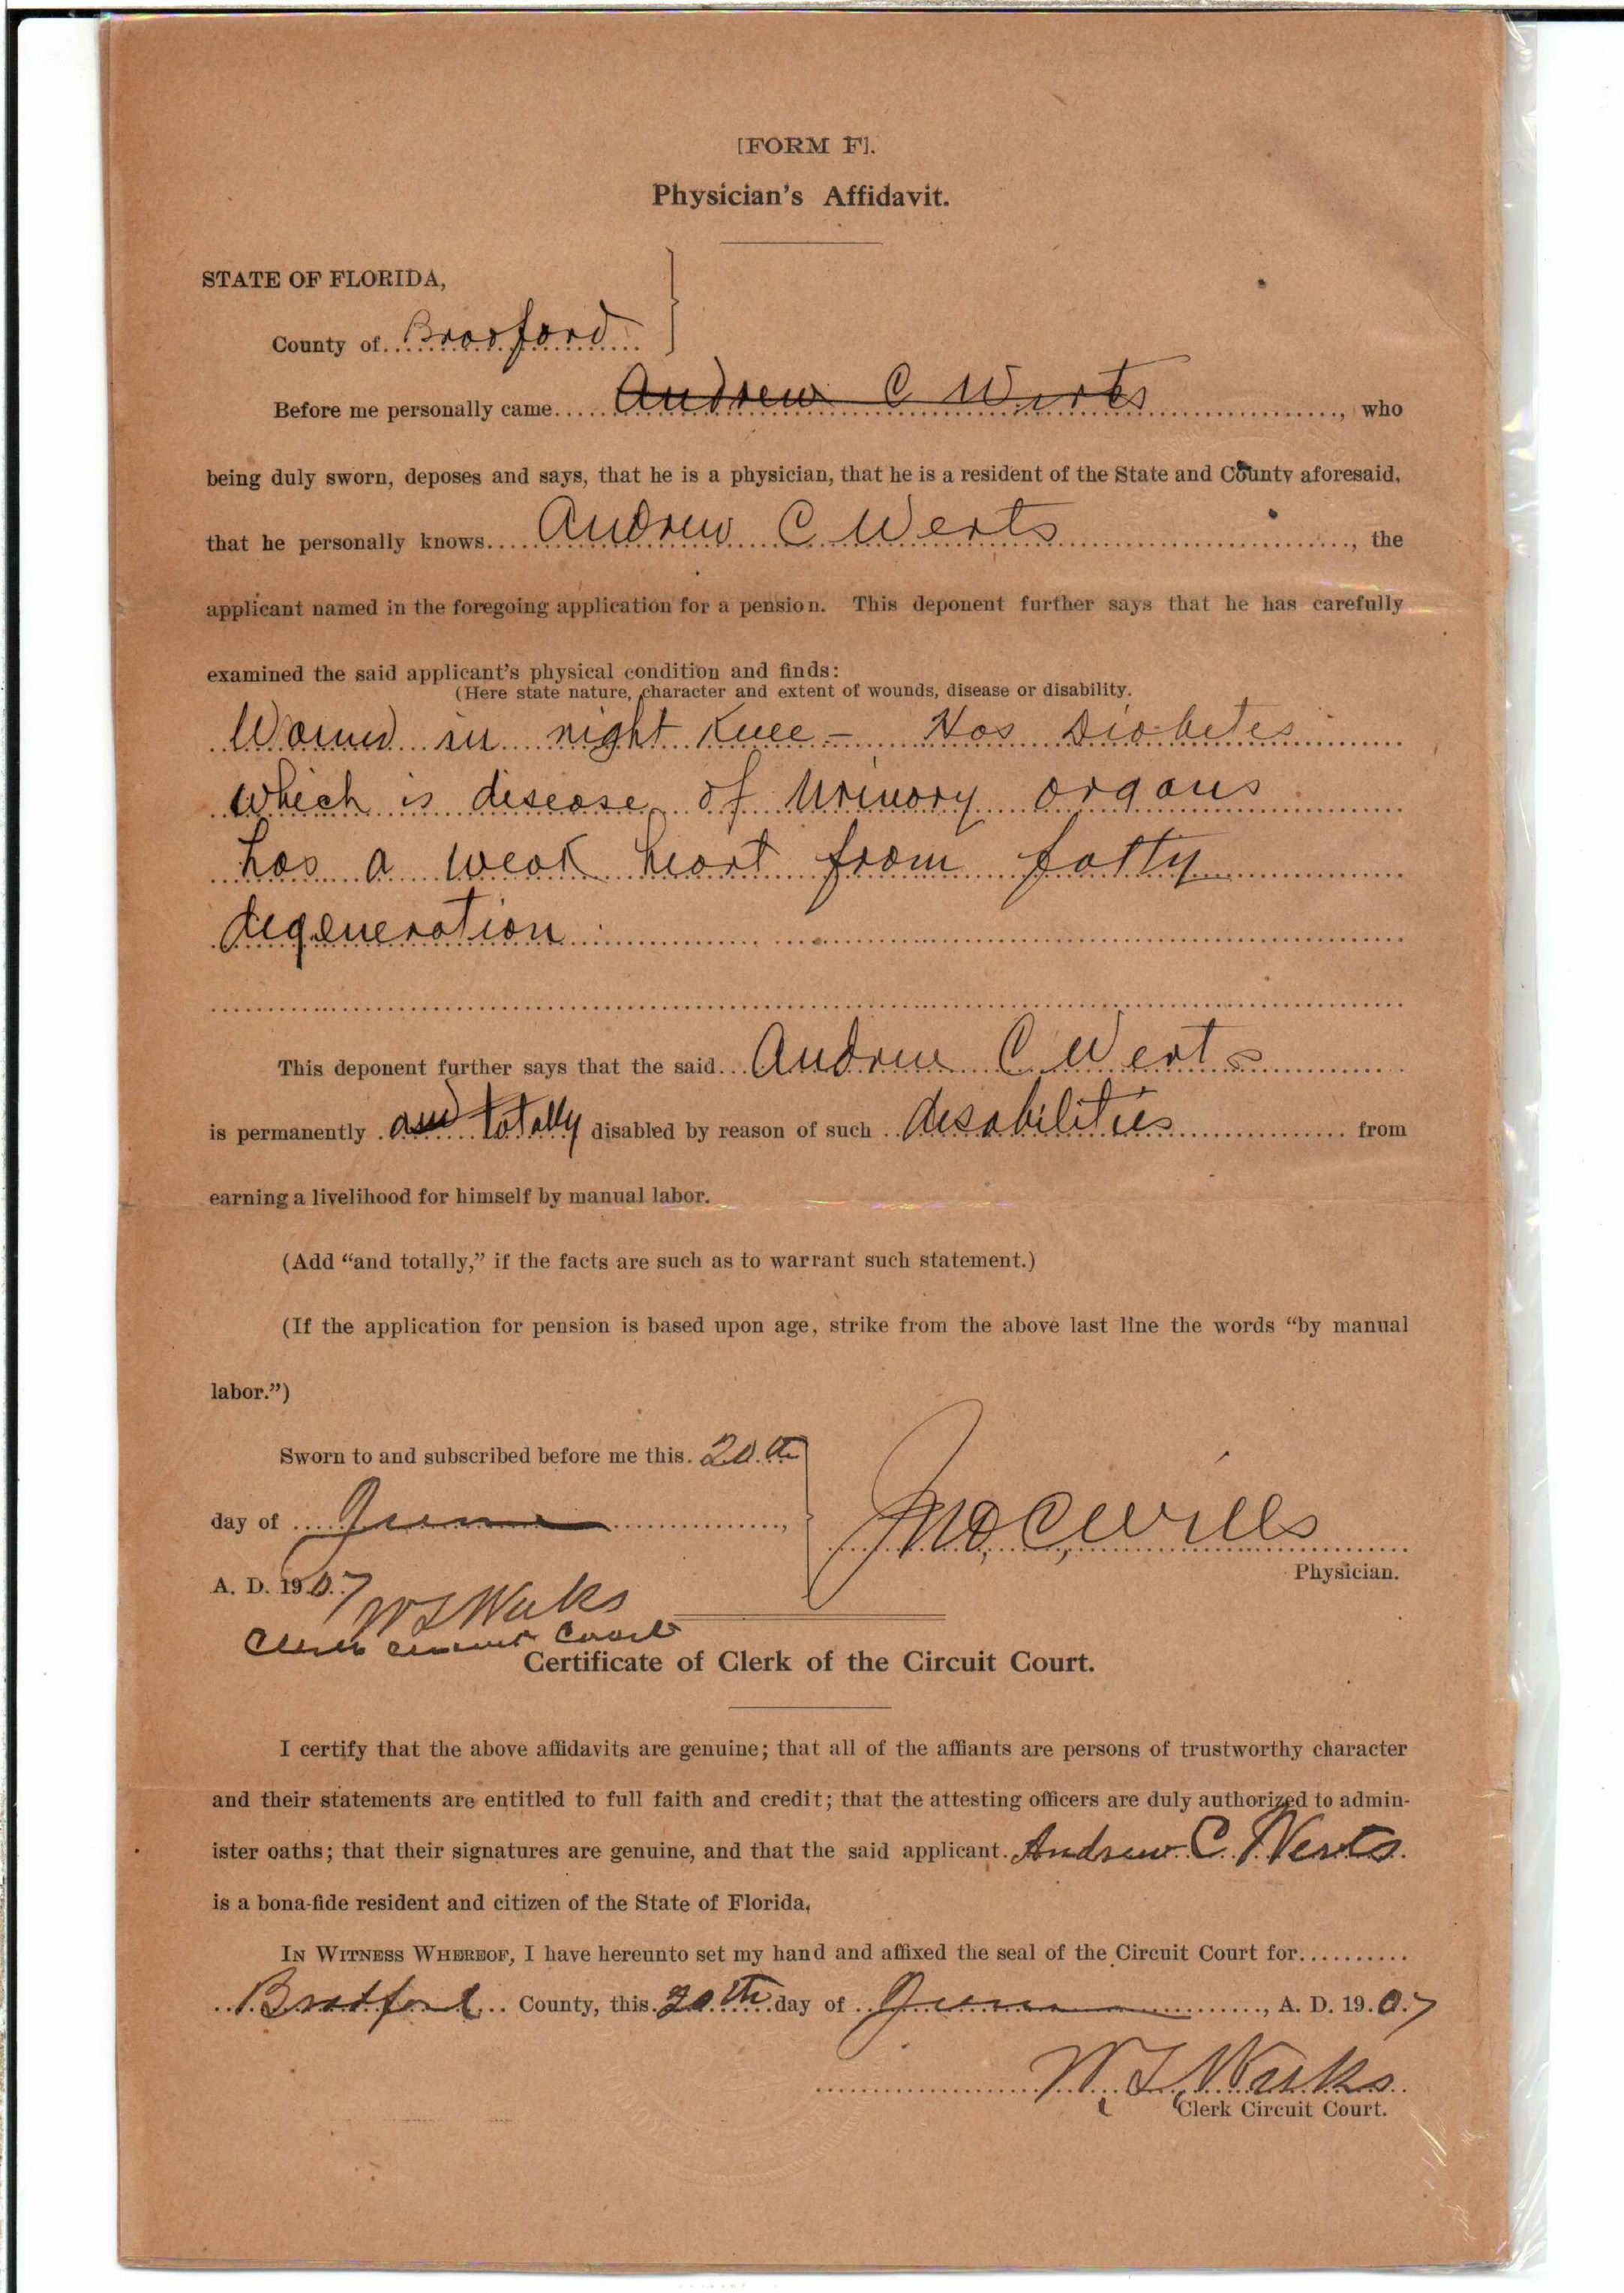 [FORM F].
Physician's Affidavit.
STATE OF FLORIDA,
County of Bradford
Before me personally came Andrew C Werts, who
being duly sworn, deposes and says, that he is a physician, that he is a resident of the State and County aforesaid,
that he personally knows Andrew C Werts, the
applicant named in the foregoing application for a pension. This deponent further says that he has carefully
examined the said applicant's physical condition and finds:
(Here state nature, character and extent of wounds, disease or disability.
Wound in right Knee - Has Diabetes
which is disease of Urinary organs
has a weak heart from fatty
degeneration
This deponent further says that the said Andrew C Werts
is permanently and totally disabled by reason of such disabilities from
earning a livelihood for himself by manual labor.
(Add “and totally,” if the facts are such as to warrant such statement.)
(If the application for pension is based upon age, strike from the above last line the words “by manual
labor.”)
Sworn to and subscribed before me this 20th
day of June,
A. D. 1907
Jno C Wills
Physician.
W I Weeks
Clerk Circuit Court
Certificate of Clerk of the Circuit Court.
I certify that the above affidavits are genuine; that all of the affiants are persons of trustworthy character
and their statements are entitled to full faith and credit; that the attesting officers are duly authorized to admin-
ister oaths; that their signatures are genuine, and that the said applicant Andrew C. Werts
is a bona-fide resident and citizen of the State of Florida,
IN WITNESS WHEREOF, I have hereunto set my hand and affixed the seal of the Circuit Court for
Bradford County, this 20th day of June, A. D. 1907
W. I. Weeks
Clerk Circuit Court.